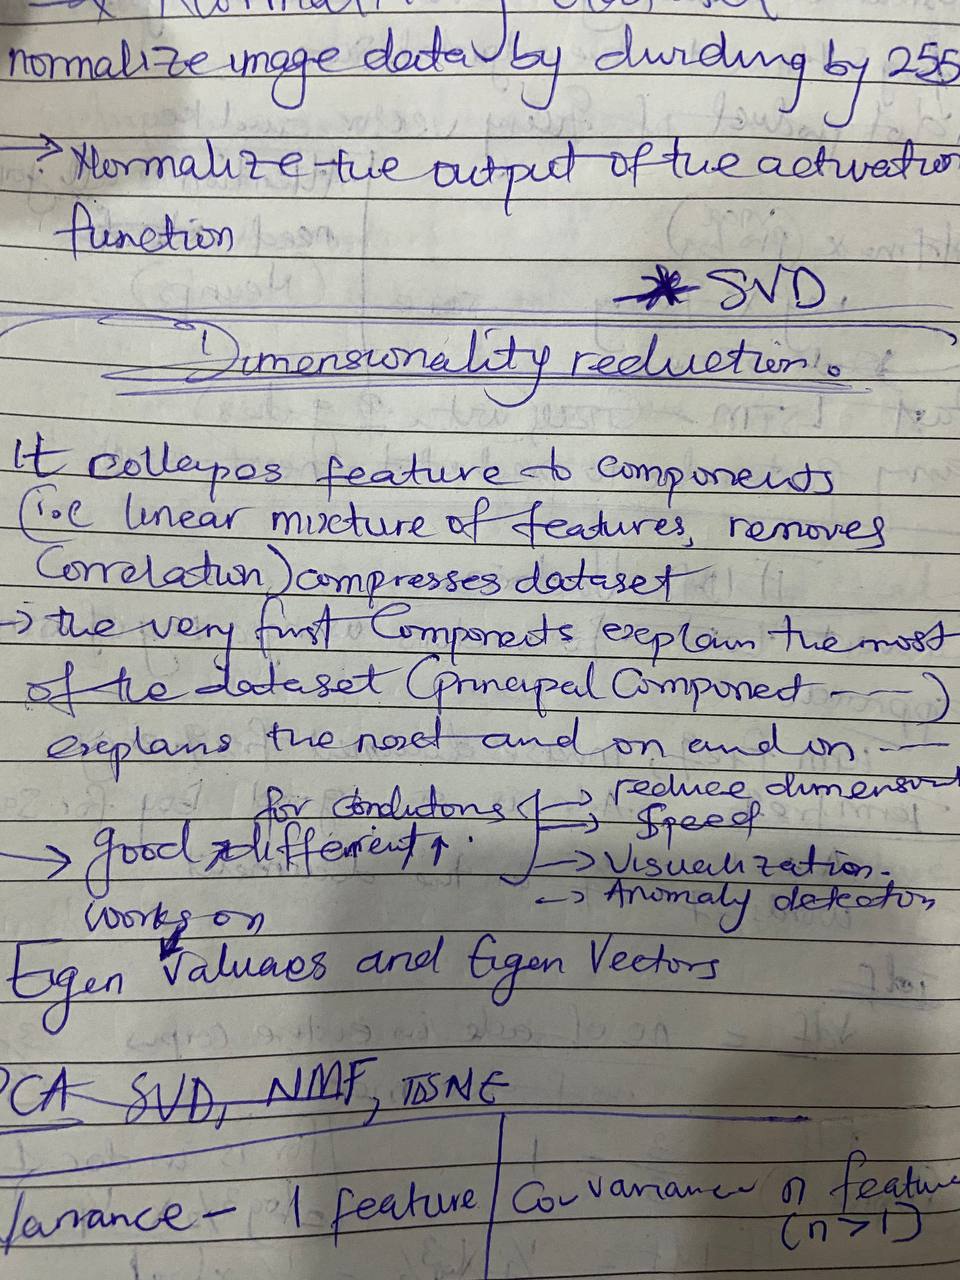 normalize image data by dividing by 255
→ Normalize the output of the activation
function
* SVD
Dimensionality reduction.
It collapos feature to components
(i.e linear mixture of features, removes
Correlation) compresses dataset
→ the very first Components explain the most
of the dataset (principal Component ---)
explans the next and on and on ---
for conditons → reduce dimension
→ Speed
→ good different ↑
→ Visualization.
→ Anomaly detection
works on
Eigen Values and Eigen Vectors
PCA SVD, NMF, TSNE
Variance - 1 feature | Co-variance n feature
(n>1)